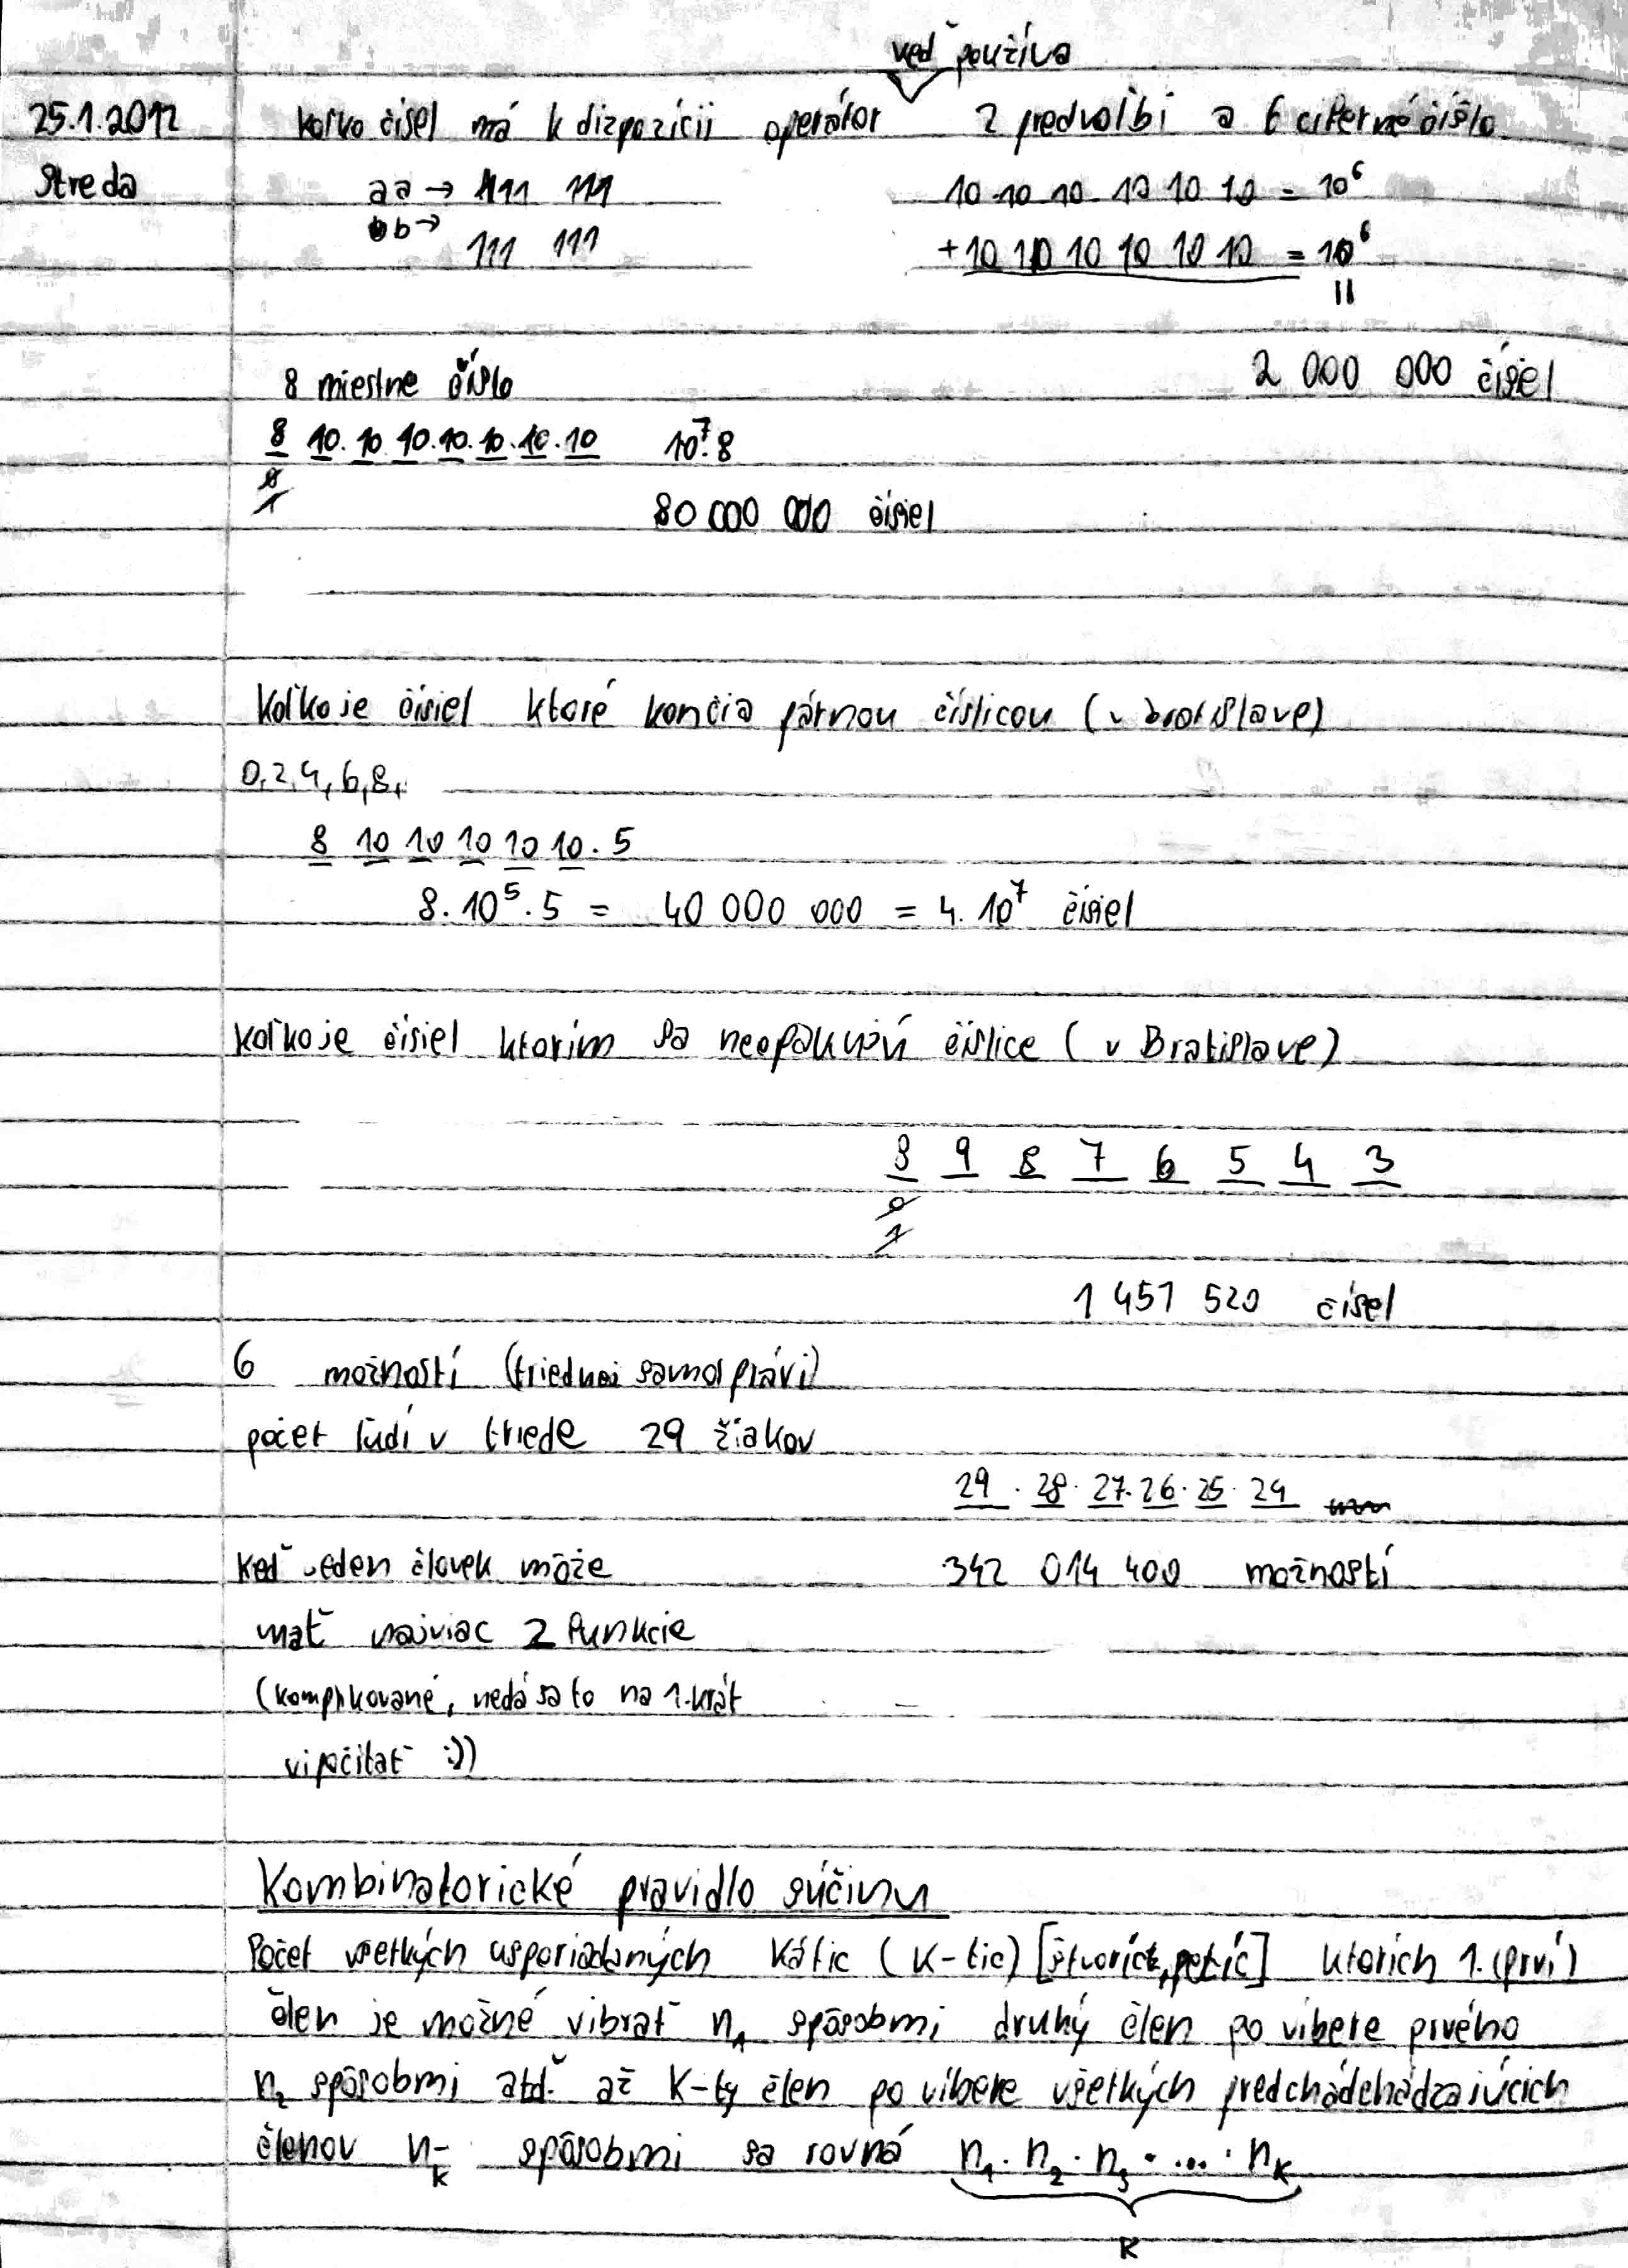 keď používa
25.1.2012 koľko čísel má k dizpozícii operátor 2 predvolbi a 6 ciferné číslo
Streda aa → 111 111 10 10 10 10 10 10 = 10⁶
bb → 111 111 + 10 10 10 10 10 10 = 10⁶
||
8 miestne číslo 2 000 000 čísel
8 10. 10 10. 10. 10. 10. 10 10⁷. 8
0
1 80 000 000 čísiel
Koľko je čísiel ktoré končia párnou číslicou (v bratislave)
0, 2, 4, 6, 8,
8 10 10 10 10 10 . 5
8. 10⁵. 5 = 40 000 000 = 4. 10⁷ čísiel
koľko je čísiel ktorím sa neopakujú číslice ( v Bratislave)
8 9 8 7 6 5 4 3
0
1
1 451 520 čísel
6 možností (triednei samosprávi)
počet ľudí v triede 29 žiakov
29 . 28 . 27. 26 . 25 . 24
keď jeden človek môže 342 014 400 možností
mať najviac 2 funkcie
(komplikované, nedá sa to na 1.krát
vipočítať :))
Kombinatorické pravidlo súčinu
Počet všetkých usporiadaných Kátic (K-tic) [štvoríc, petíc] ktorích 1. (prví)
člen je možné vibrať n₁ spôsobmi druhý člen po víbere prvého
n₂ spôsobmi atď. až K-ty člen po víbere všetkých predchádchádzajúcich
členov nₖ spôsobmi sa rovná n₁ . n₂ . n₃ . ... . nₖ
K